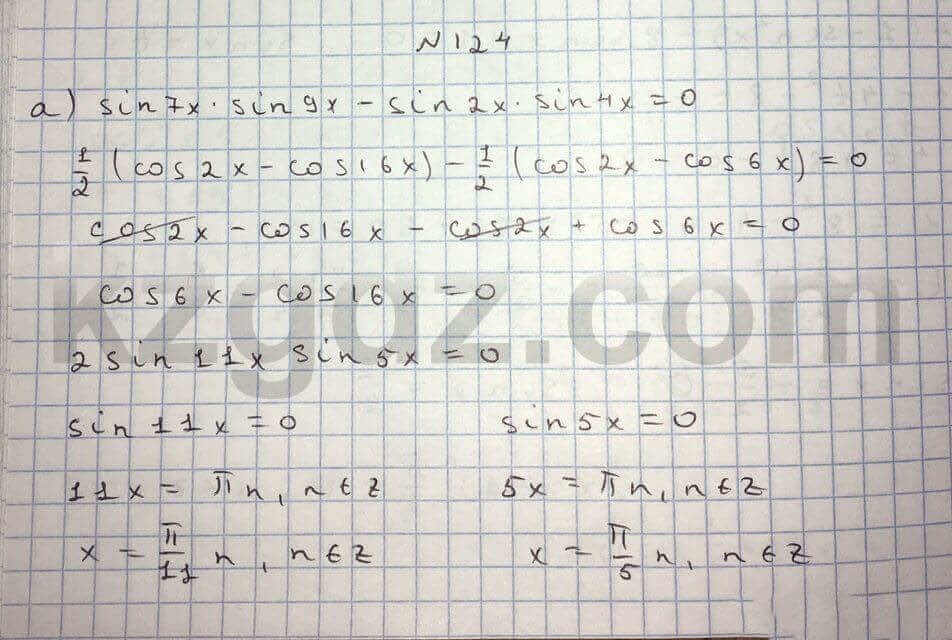 N124
a) sin7x · sin9x – sin2x · sin4x = 0
1/2 (cos2x – cos16x) – 1/2 (cos2x – cos6x) = 0
cos2x – cos16x – cos2x + cos6x = 0
cos6x – cos16x = 0
kzgdz.com
2 sin11x sin5x = 0
sin11x = 0 sin5x = 0
11x = πn, n∈Z 5x = πn, n∈Z
x = π/11 n, n∈Z x = π/5 n, n∈Z